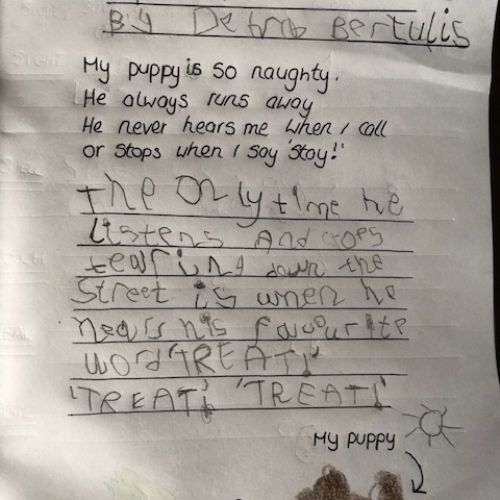 By Bertulis
My puppy is so naughty.
He always runs away
He never hears me when I call
or stops when I say 'stay!'
The Only time he
Listens And stops
tearing down the
Street is when he
hears his favourite
word 'TREAT!'
'TREAT! 'TREAT!'
My puppy